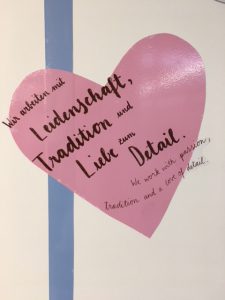 Wir arbeiten mit
Leidenschaft,
Tradition und
Liebe zum
Detail.
We work with passion,
Tradition and a love of detail.